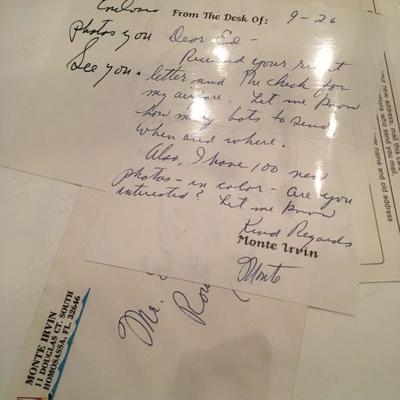 Enclosed
photos you
See you
From The Desk Of:
9-26
Dear Ed -
Received your recent
letter and the check for
my airfare. Let me know
how many bats to send
when and where.
Also, I have 100 new
photos - in color - are you
interested? Let me know
Kind Regards
Monte Irvin
Monte
Mr.
MONTE IRVIN
11 DOUGLAS CT. SOUTH
HOMOSASSA, FL. 32646
new address, mail this car
who send you mail.
name and old address